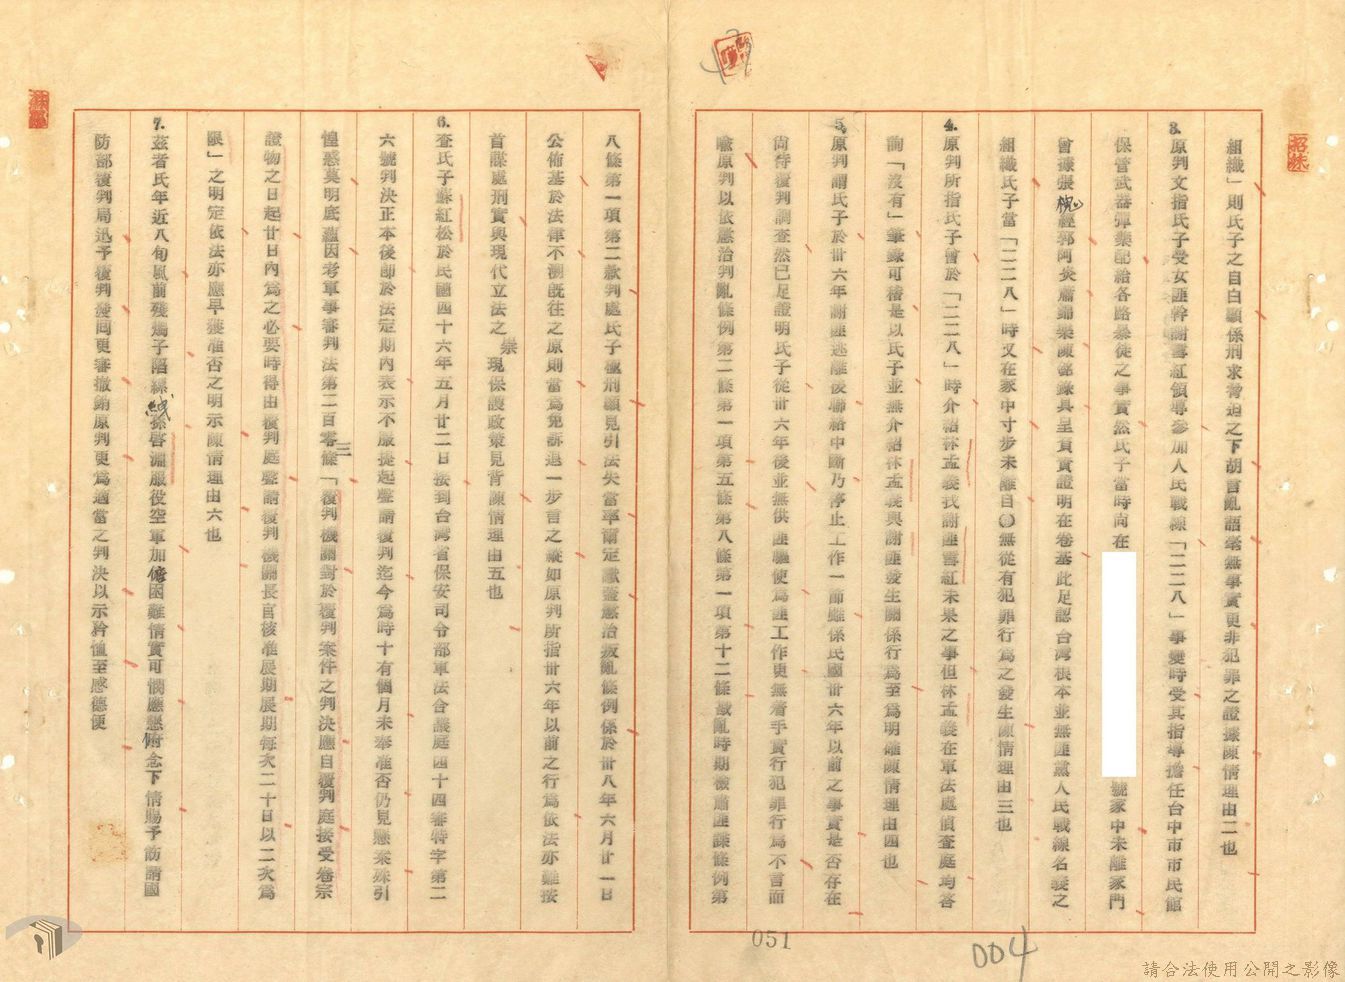 組織」則氏子之自白顯係刑求脅迫之下胡言亂語毫無事實更非犯罪之證據陳情理由二也
3.原判文指氏子受女匪幹謝雪紅領導參加人民戰線「二二八」事變時受其指導擔任台中市市民館
保管武器彈藥配給各路暴徒之事實然氏子當時尚在
號家中未離家門
曾據張槐經郭阿炎蕭錦樂陳錄具呈負責證明在卷基此足認台灣根本並無匪黨人民戰線名義之
組織氏子當「二二八」時又在家中寸步未離自無從有犯罪行為之發生陳情理由三也
4.原判所指氏子曾於「二二八」時介紹林孟義找謝匪雪紅未果之事但林孟義在軍法處偵查庭均答
詢「沒有」筆錄可稽是以氏子並無介紹林孟義與謝匪發生關係行為至為明確陳情理由四也
5.原判謂氏子於卅六年謝匪逃離後聯絡中斷乃停止工作一節雖係民國卅六年以前之事實是否存在
尚待覆判調查然已足證明氏子從卅六年後並無供匪驅使為匪工作更無着手實行犯罪行為不言而
喻原判以依懲治叛亂條例第二條第一項第五條第八條第一項第十二條戡亂時期檢肅匪諜條例第
八條第一項第二款判處氏子極刑顯見引法失當率爾定讞蓋懲治叛亂條例係於卅八年六月廿一日
公佈基於法律不溯既往之原則當為免訴退一步言之縱如原判所指卅六年以前之行為依法亦難按
首謀處刑實與現代立法之崇現保護政策見背陳情理由五也
6.查氏子蘇紅松於民國四十六年五月廿二日接到台灣省保安司令部軍法合議庭四十四審特字第二
六號判決正本後即於法定期內表示不服提起聲請覆判迄今為時十有個月未奉准否仍見懸案殊引
惶惑莫明底蘊因考軍事審判法第二百零三條「覆判機關對於覆判案件之判決應自覆判庭接受卷宗
證物之日起廿日內為之必要時得由覆判庭聲請覆判機關長官核准展期展期每次二十日以二次為
限」之明定依法亦應早獲准否之明示陳情理由六也
7.茲者氏年近八旬風前殘燭子陷縲絏孫啓淵服役空軍加偹困難情實可憫應懇俯念下情賜予函請國
防部覆判局迅予覆判發回更審撤銷原判更為適當之判決以示矜恤至感德便
051
004
請合法使用公開之影像